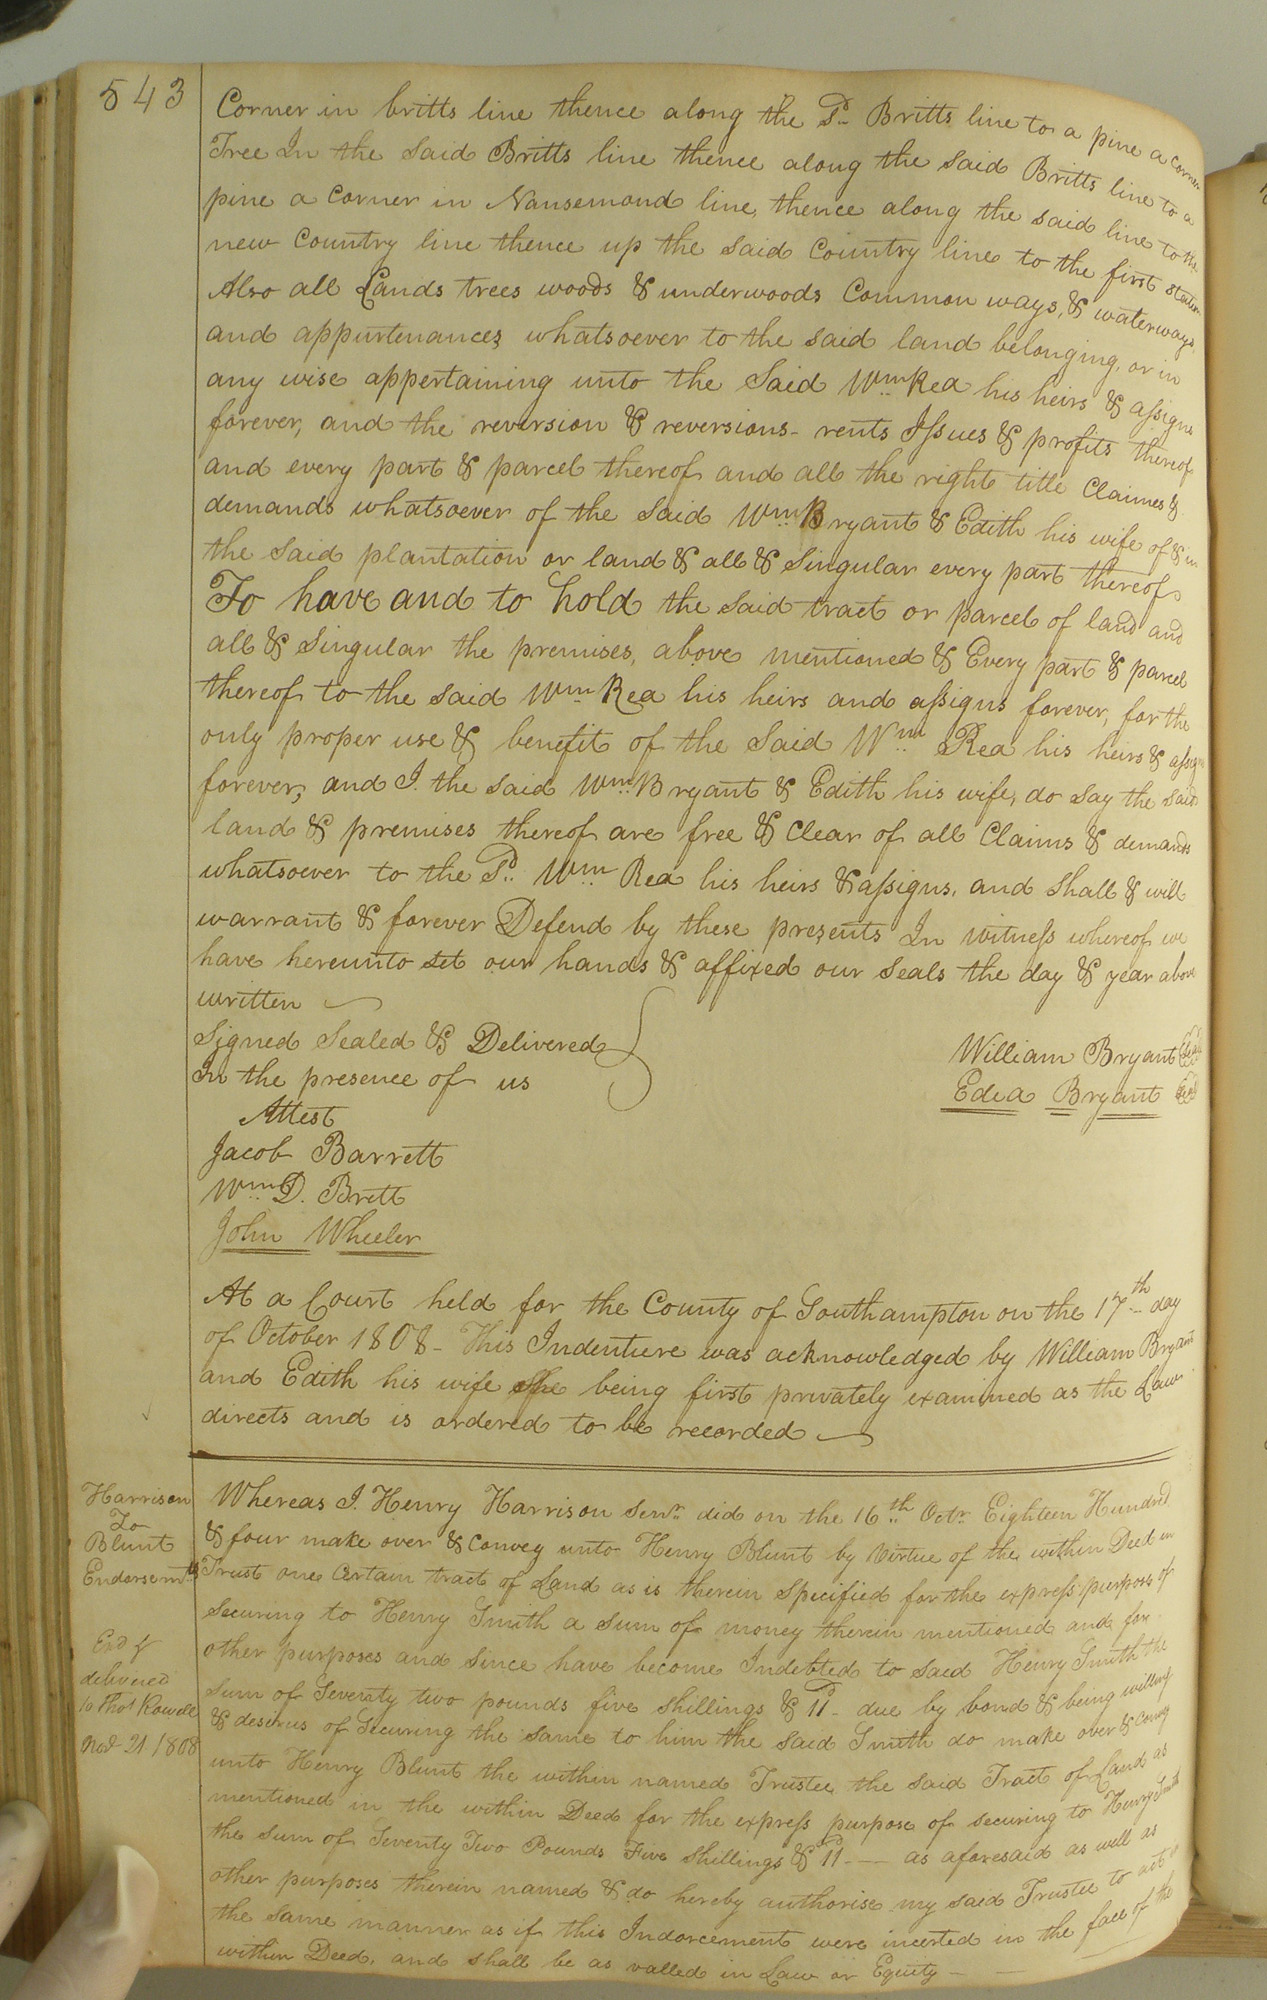 543
Corner in britts line thence along the Sd. Britts line to a pine a corner
Tree In the Said Britts line thence along the Said Britts line to a
pine a Corner in Nansemond line, thence along the said line to the
new Country line thence up the said Country line to the first station
Also all Lands trees woods & underwoods Common ways, & waterways,
and appurtenances whatsoever to the said land belonging, or in
any wise appertaining unto the Said Wm. Rea his heirs & assigns
forever, and the reversion & reversions- rents Issues & profits thereof
and every part & parcel thereof and all the right title Claimes &
demands whatsoever of the Said Wm. Bryant & Edith his wife of & in
the Said plantation or land & all & Singular every part thereof
To have and to hold the said tract or parcel of land and
all & Singular the premises, above mentioned & Every part & parcel
thereof to the said Wm. Rea his heirs and assigns forever, for the
only proper use & benefit of the Said Wm. Rea his heirs & assigns
forever, and I. the said Wm. Bryant & Edith his wife, do Say the said
land & premises thereof are free & Clear of all Claims & demands
whatsoever to the Sd. Wm. Rea his heirs & assigns, and Shall & will
warrant & forever Defend by these presents In witness whereof we
have hereunto set our hands & affixed our seals the day & year above
written
Signed Sealed & Delivered
In the presence of us
William Bryant
Edea Bryant
Attest
Jacob Barrett
Wm. D. Britt
John Wheeler
At a Court held for the County of Southampton on the 17th day
of October 1808- This Indenture was acknowledged by William Bryant
and Edith his wife she being first privately examined as the Law
directs and is ordered to be recorded
Harrison
To
Blunt
Endorsemt.
Exd &
delivered
to Thos Rowell
Nov 21 1808
Whereas I. Henry Harrison Senr. did on the 16th Octr. Eighteen Hundred
& four make over & Convey unto Henry Blunt by Virtue of the within Deed in
Trust one Certain tract of Land as is therein Specified for the express purpose of
Securing to Henry Smith a Sum of money therein mentioned and for
other purposes and Since have become Indebted to said Henry Smith the
Sum of Seventy two pounds five shillings & 11d- due by bond & being willing
& desirus of Securing the same to him the said Smith do make over & Convey
unto Henry Blunt the within named Trustee, the said Tract of Land as
mentioned in the within Deed for the express purpose of securing to Henry Smith
the sum of Seventy Two Pounds Five Shillings & 11d- as aforesaid as well as
other purposes therein named & do hereby authorise my said Trustee to act in
the same manner as if this Indorcement were incerted in the face of the
within Deed, and shall be as valled in Law or Equity-